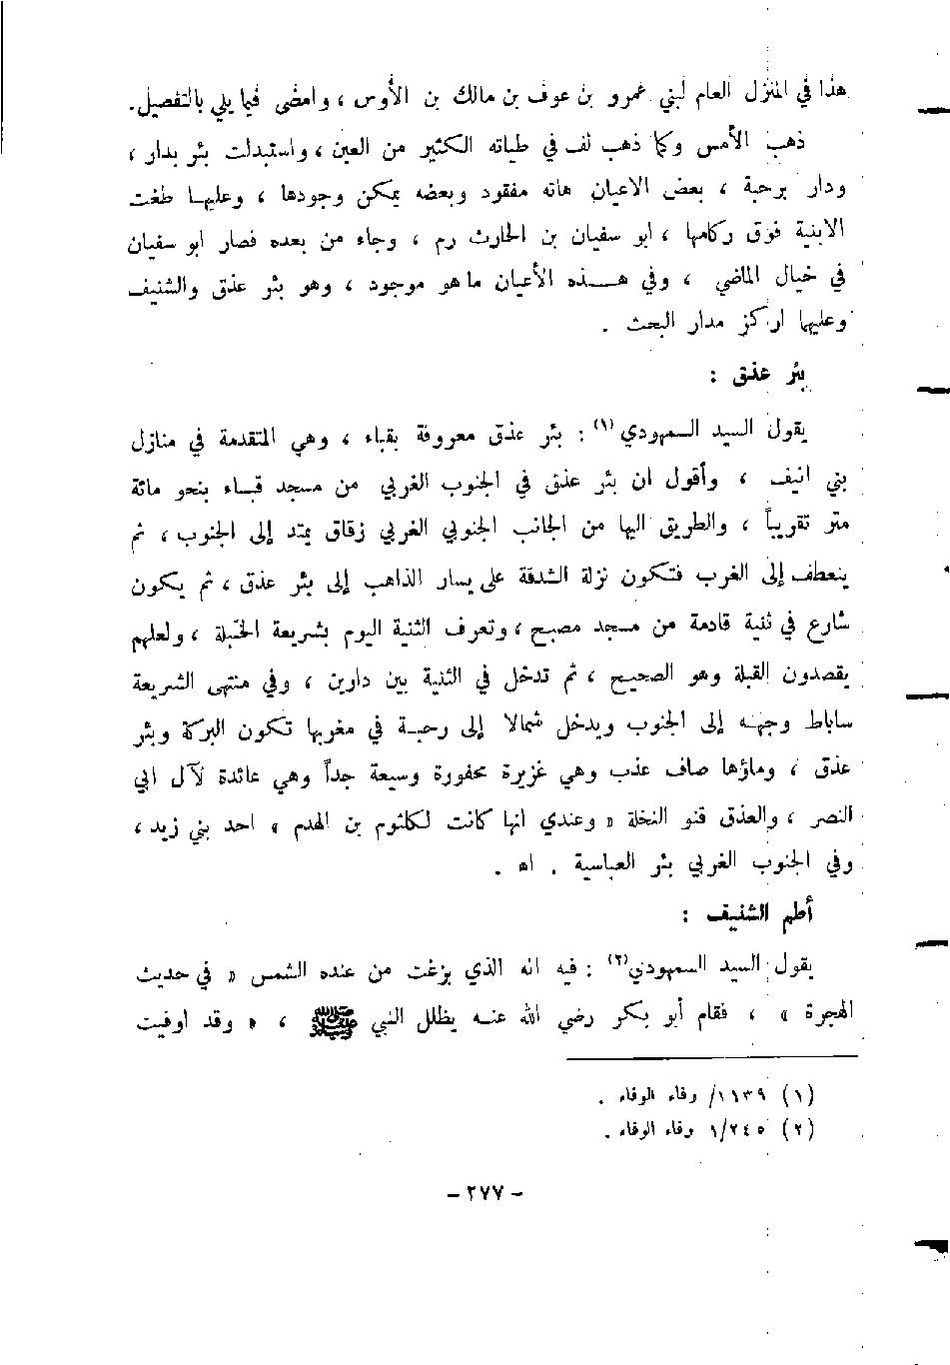 هذا في المنزل العام لبني عمرو بن عوف بن مالك بن الأوس ، وامضى فيما يلي بالتفصيل .
ذهب الأمس وكما ذهب لف في طياته الكثير من العين ، واستبدلت بئر بدار ،
ودار برحبة ، بعض الاعيان هاته مفقود وبعضه يمكن وجودها ، وعليها طغت
الابنية فوق ركامها ، ابو سفيان بن الحارث رم ، وجاء من بعده فصار ابو سفيان
في خيال الماضي ، وفي هذه الأعيان ماهو موجود ، وهو بئر عذق والشنيف
وعليها اركز مدار البحث .
بئر عذق :
يقول السيد السمهودي (١) : بئر عذق معروفة بقباء ، وهي المتقدمة في منازل
بني انيف ، وأقول ان بئر عذق في الجنوب الغربي من مسجد قباء بنحو مائة
متر تقريباً ، والطريق اليها من الجانب الجنوبي الغربي زقاق يمتد إلى الجنوب ، ثم
ينعطف إلى الغرب فتكون نزلة الشدقة على يسار الذاهب إلى بئر عذق ، ثم يكون
شارع في ثنية قادمة من مسجد مصبح ، وتعرف الثنية اليوم بشريعة الخبلة ، ولعلهم
يقصدون القبلة وهو الصحيح ، ثم تدخل في الثنية بين دارين ، وفي منتهى الشريعة
ساباط وجهه إلى الجنوب ويدخل شمالا إلى رحبة في مغربها تكون البركة وبئر
عذق ، وماؤها صاف عذب وهي غزيرة محفورة وسيعة جداً وهي عائدة لآل ابي
النصر ، والعذق قنو النخلة « وعندي انها كانت لكلثوم بن الهدم » احد بني زيد ،
وفي الجنوب الغربي بئر العباسية . اه .
أطم الشنيف :
يقول السيد السمهودي (٢) : فيه انه الذي بزغت من عنده الشمس « في حديث
الهجرة » ، فقام أبو بكر رضي الله عنه يظلل النبي ﷺ ، « وقد اوفيت
(١) ١١٣٩/ وفاء الوفاء .
(٢) ١/٢٤٥ وفاء الوفاء .
- ٢٧٧ -